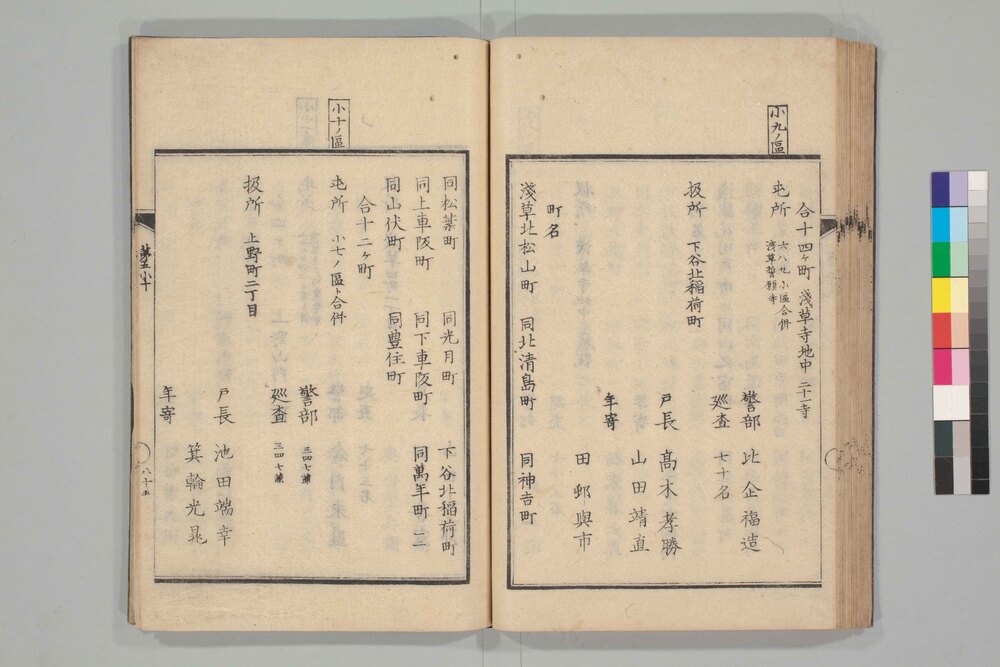 小九ノ區
合十四ヶ町 淺草寺地中 二十一寺
屯所 六八九小區合併
淺草誓願寺
警部 比企福造
巡查 七十名
扱所 下谷北稲荷町
戸長 髙木孝勝
山田靖直
年寄
田邨與市
町名
淺草北松山町 同北清島町 同神吉町
同松葉町 同光月町 下谷北稲荷町
同上車阪町 同下車阪町 同萬年町 一二
同山伏町 同豊住町
合十二ヶ町
小十ノ區
屯所 小七ノ區ト合併
警部 三四七兼
巡查 三四七兼
扱所 上野町二丁目
戸長 池田端幸
箕輪光晁
年寄
第五小十
八十五